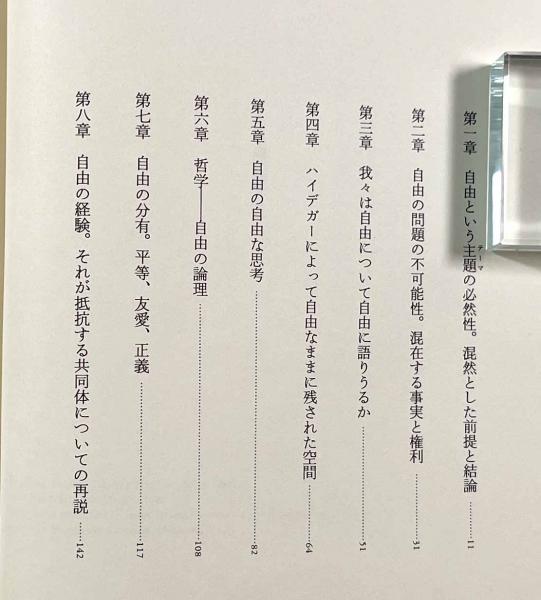 第一章　自由という主題の必然性。混然とした前提と結論…………11
テーマ
第二章　自由の問題の不可能性。混在する事実と権利…………31
第三章　我々は自由について自由に語りうるか…………51
第四章　ハイデガーによって自由なままに残された空間…………64
第五章　自由の自由な思考…………82
第六章　哲学――自由の論理…………108
第七章　自由の分有。平等、友愛、正義…………117
第八章　自由の経験。それが抵抗する共同体についての再説……142